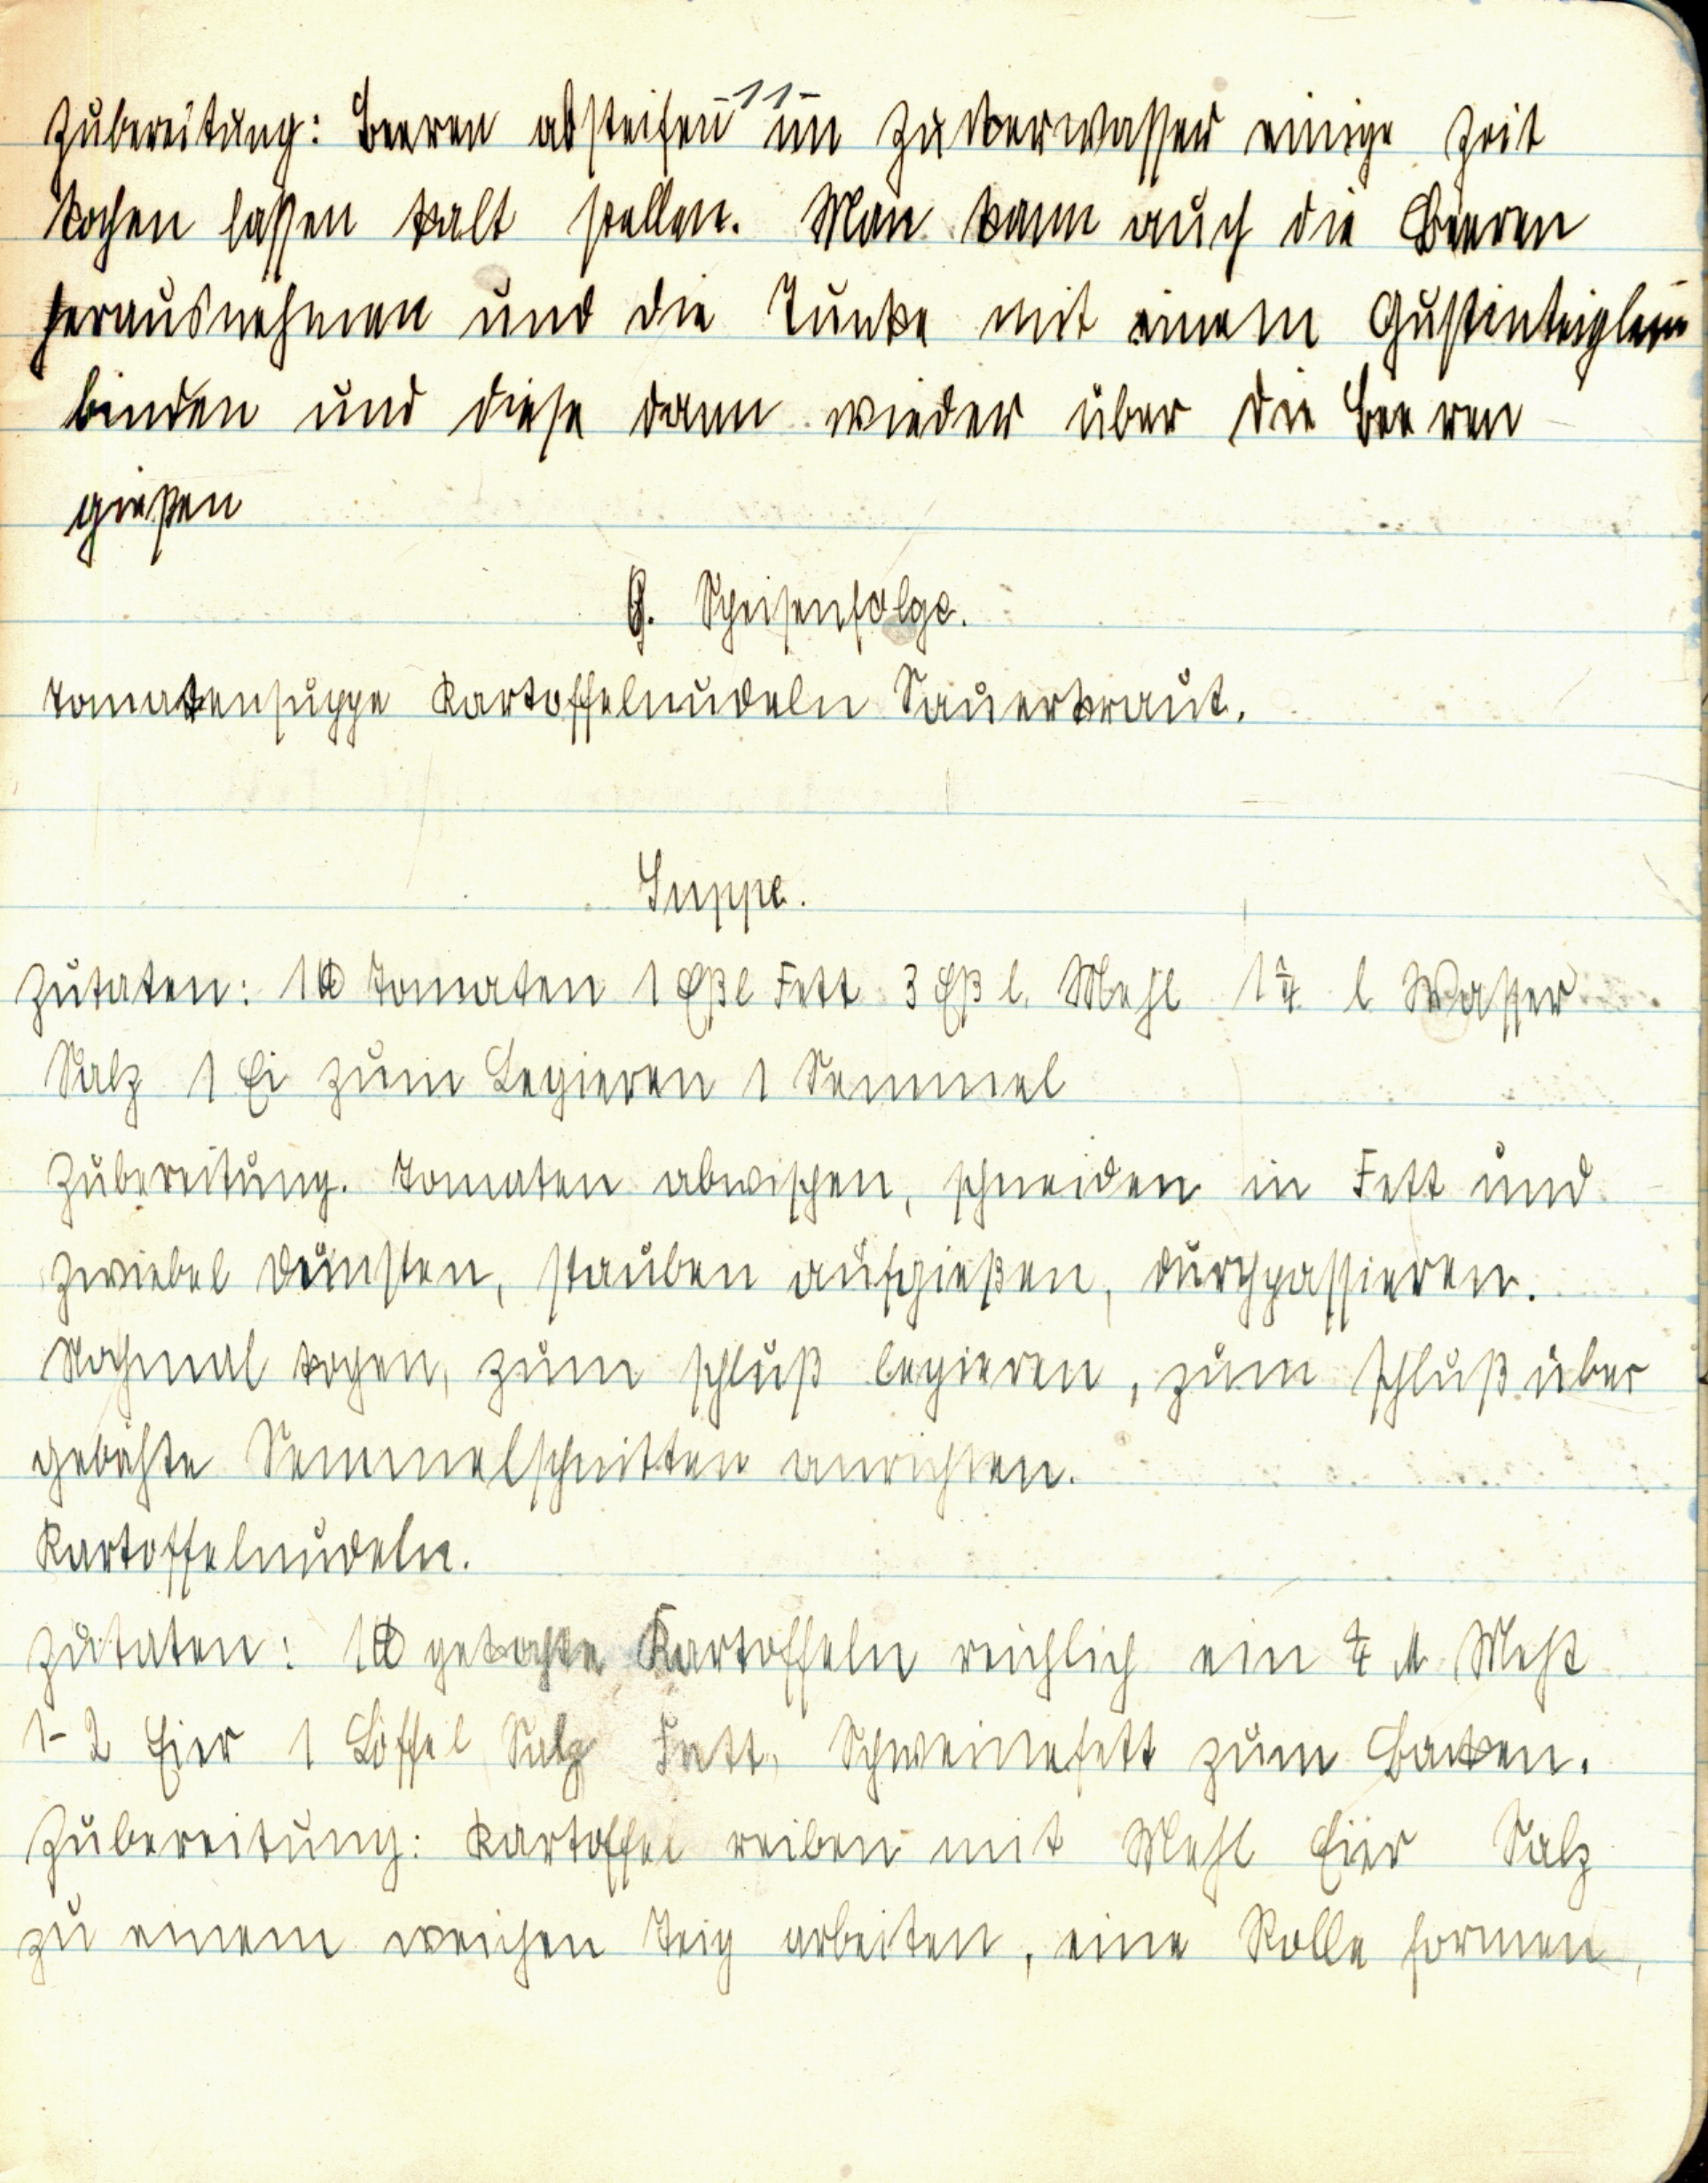 -11-
Zubereitung: Beeren absteifen im Zuckerwasser einige Zeit
kochen lassen kalt stellen. Man kann auch die Beeren
herausnehmen und die Tunke mit einem Gustinteiglein
binden und diese dann wieder über die Beeren
gießen
Speisenfolge.
Tomatensuppe Kartoffelnudeln Sauerkraut.
Suppe.
Zutaten: 1 ℔ Tomaten 1 Eßl Fett 3 Eßl. Mehl 1 l Wasser
Salz 1 Ei zum Legieren 1 Semmel
Zubereitung. Tomaten abwischen, schneiden in Fett und
Zwiebel dünsten, stauben aufgießen, durchpassieren.
Nochmal kochen, zum schluß legieren, zum schluß über
gebähte Semmelschnitten anrichten.
Kartoffelnudeln.
Zutaten: 1 ℔ gekochte Kartoffeln reichlich ein
1-2 Eier 1 Löffel Salz Fett, Schweinefett zum Backen.
Zubereitung: Kartoffel reiben mit Mehl Eier Salz
zu einem weichen Teig arbeiten, eine Rolle formen,